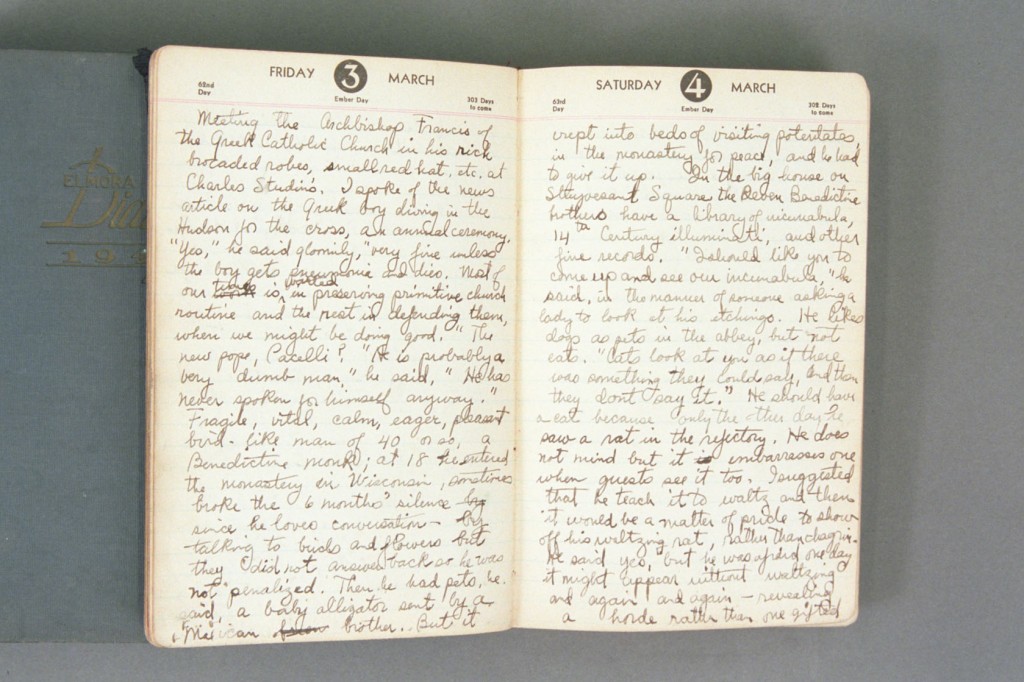 ELMORA
Diary
193
FRIDAY 3 MARCH
62nd
Day
Ember Day
303 Days
to come
Meeting the Archbishop Francis of
the Greek Catholic Church in his rich
brocaded robes, small red hat, etc. at
Charles Studin's. I spoke of the news
article on the Greek boy diving in the
Hudson for the cross, an annual ceremony.
"Yes," he said gloomily, "very fine unless
the boy gets pneumonia and dies. Most of
our time is wasted in preserving primitive church
routine and the rest in defending them,
when we might be doing good." The
new pope, Pacelli? "He is probably a
very dumb man," he said, "He has
never spoken for himself anyway."
Fragile, vital, calm, eager, peasant
bird-like man of 40 or so, a
Benedictine monk; at 18 he entered
the monastery in Wisconsin, sometimes
broke the 6 months' silence by
since he loves conversation – by
talking to birds and flowers but
they did not answer back so he was
not penalized. Then he had pets, he
said, a baby alligator sent by a
Mexican brother. But it
SATURDAY 4 MARCH
63rd
Day
Ember Day
302 Days
to come
crept into beds of visiting potentates,
in the monastery for peace, and he had
to give it up. In the big house on
Stuyvesant Square the seven Benedictine
brothers have a library of incunabula,
14th Century illuminati, and other
fine records. "I should like you to
come up and see our incunabula," he
said, in the manner of someone asking a
lady to look at his etchings. He likes
dogs as pets in the abbey, but not
cats. "Cats look at you as if there
was something they could say, and then
they don't say it." He should have
a cat because only the other day he
saw a rat in the refectory. He does
not mind but it is embarrasses one
when guests see it too. I suggested
that he teach it to waltz and then
it would be a matter of pride to show
off his waltzing rat, rather than chagrin.
He said yes, but he was afraid one day
it might appear without waltzing
and again and again – revealing
a horde rather than one gifted